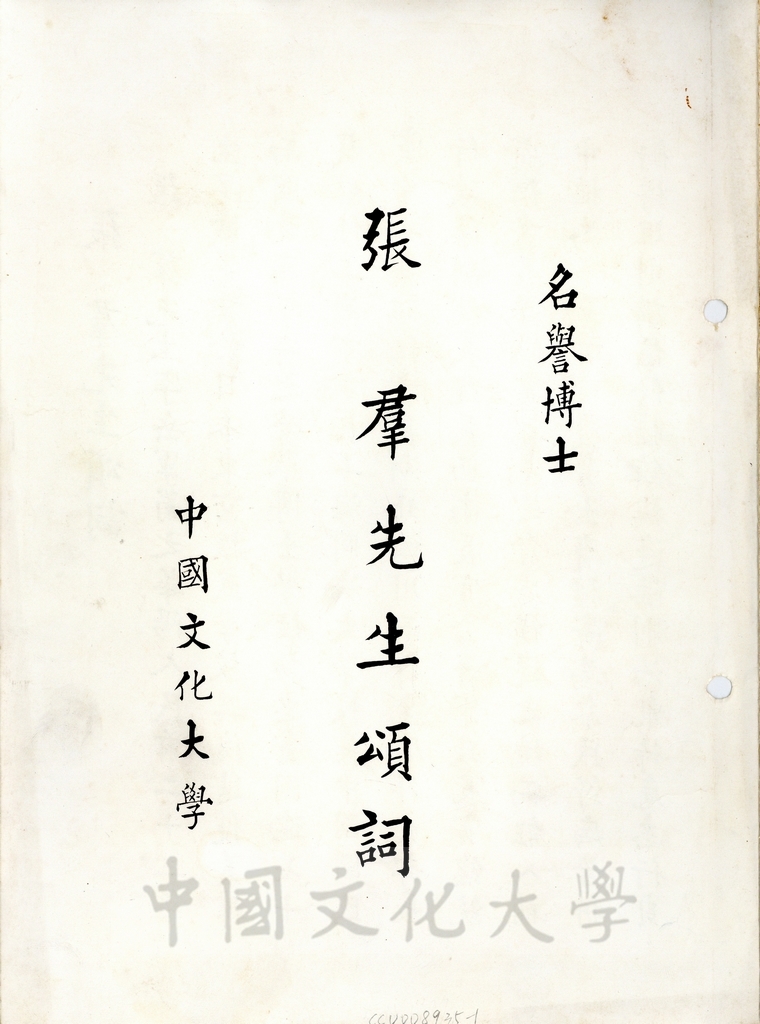 名譽博士
張羣先生頌詞
中國文化大學
中國文化大學